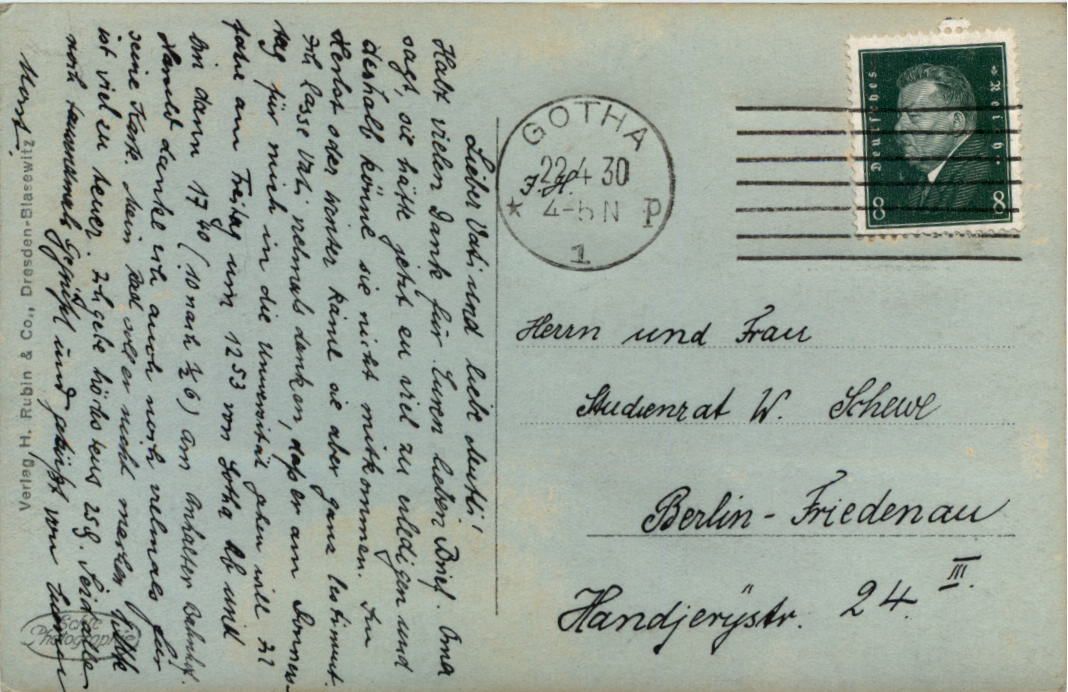 Lieber Vati und liebe Mutti!
Habt vielen Dank für Euren lieben Brief. Oma
sagt, sie hätte jetzt zu viel zu erledigen und
deshalb könne sie nicht mitkommen. Im
Herbst oder Winter käme sie aber ganz bestimmt.
Ich lasse Vati vielmals danken, daß er am Donners-
tag für mich in die Universität gehen will. Ich
fahre am Freitag um 12 53 von Gotha ab und
bin dann 17 40 (10 nach ½ 6) am Anhalter Bahnhof.
danke ich auch noch vielmals für
seine Karte. Mein Rad soll er nicht machen
ist viel zu teuer. Ich gebe höchstens 25 Seid alle
noch tausendmal gegrüßt und geküßt von Eurem
Horst.
Verlag H. Rubin & Co., Dresden-Blasewitz
Echte
Photographie
GOTHA
22.4.30
4-5 N
P
1
Deutsches Reich
8 8
Herrn und Frau
Studienrat W. Schewe
Berlin-Friedenau
Handjerystr. 24 III.